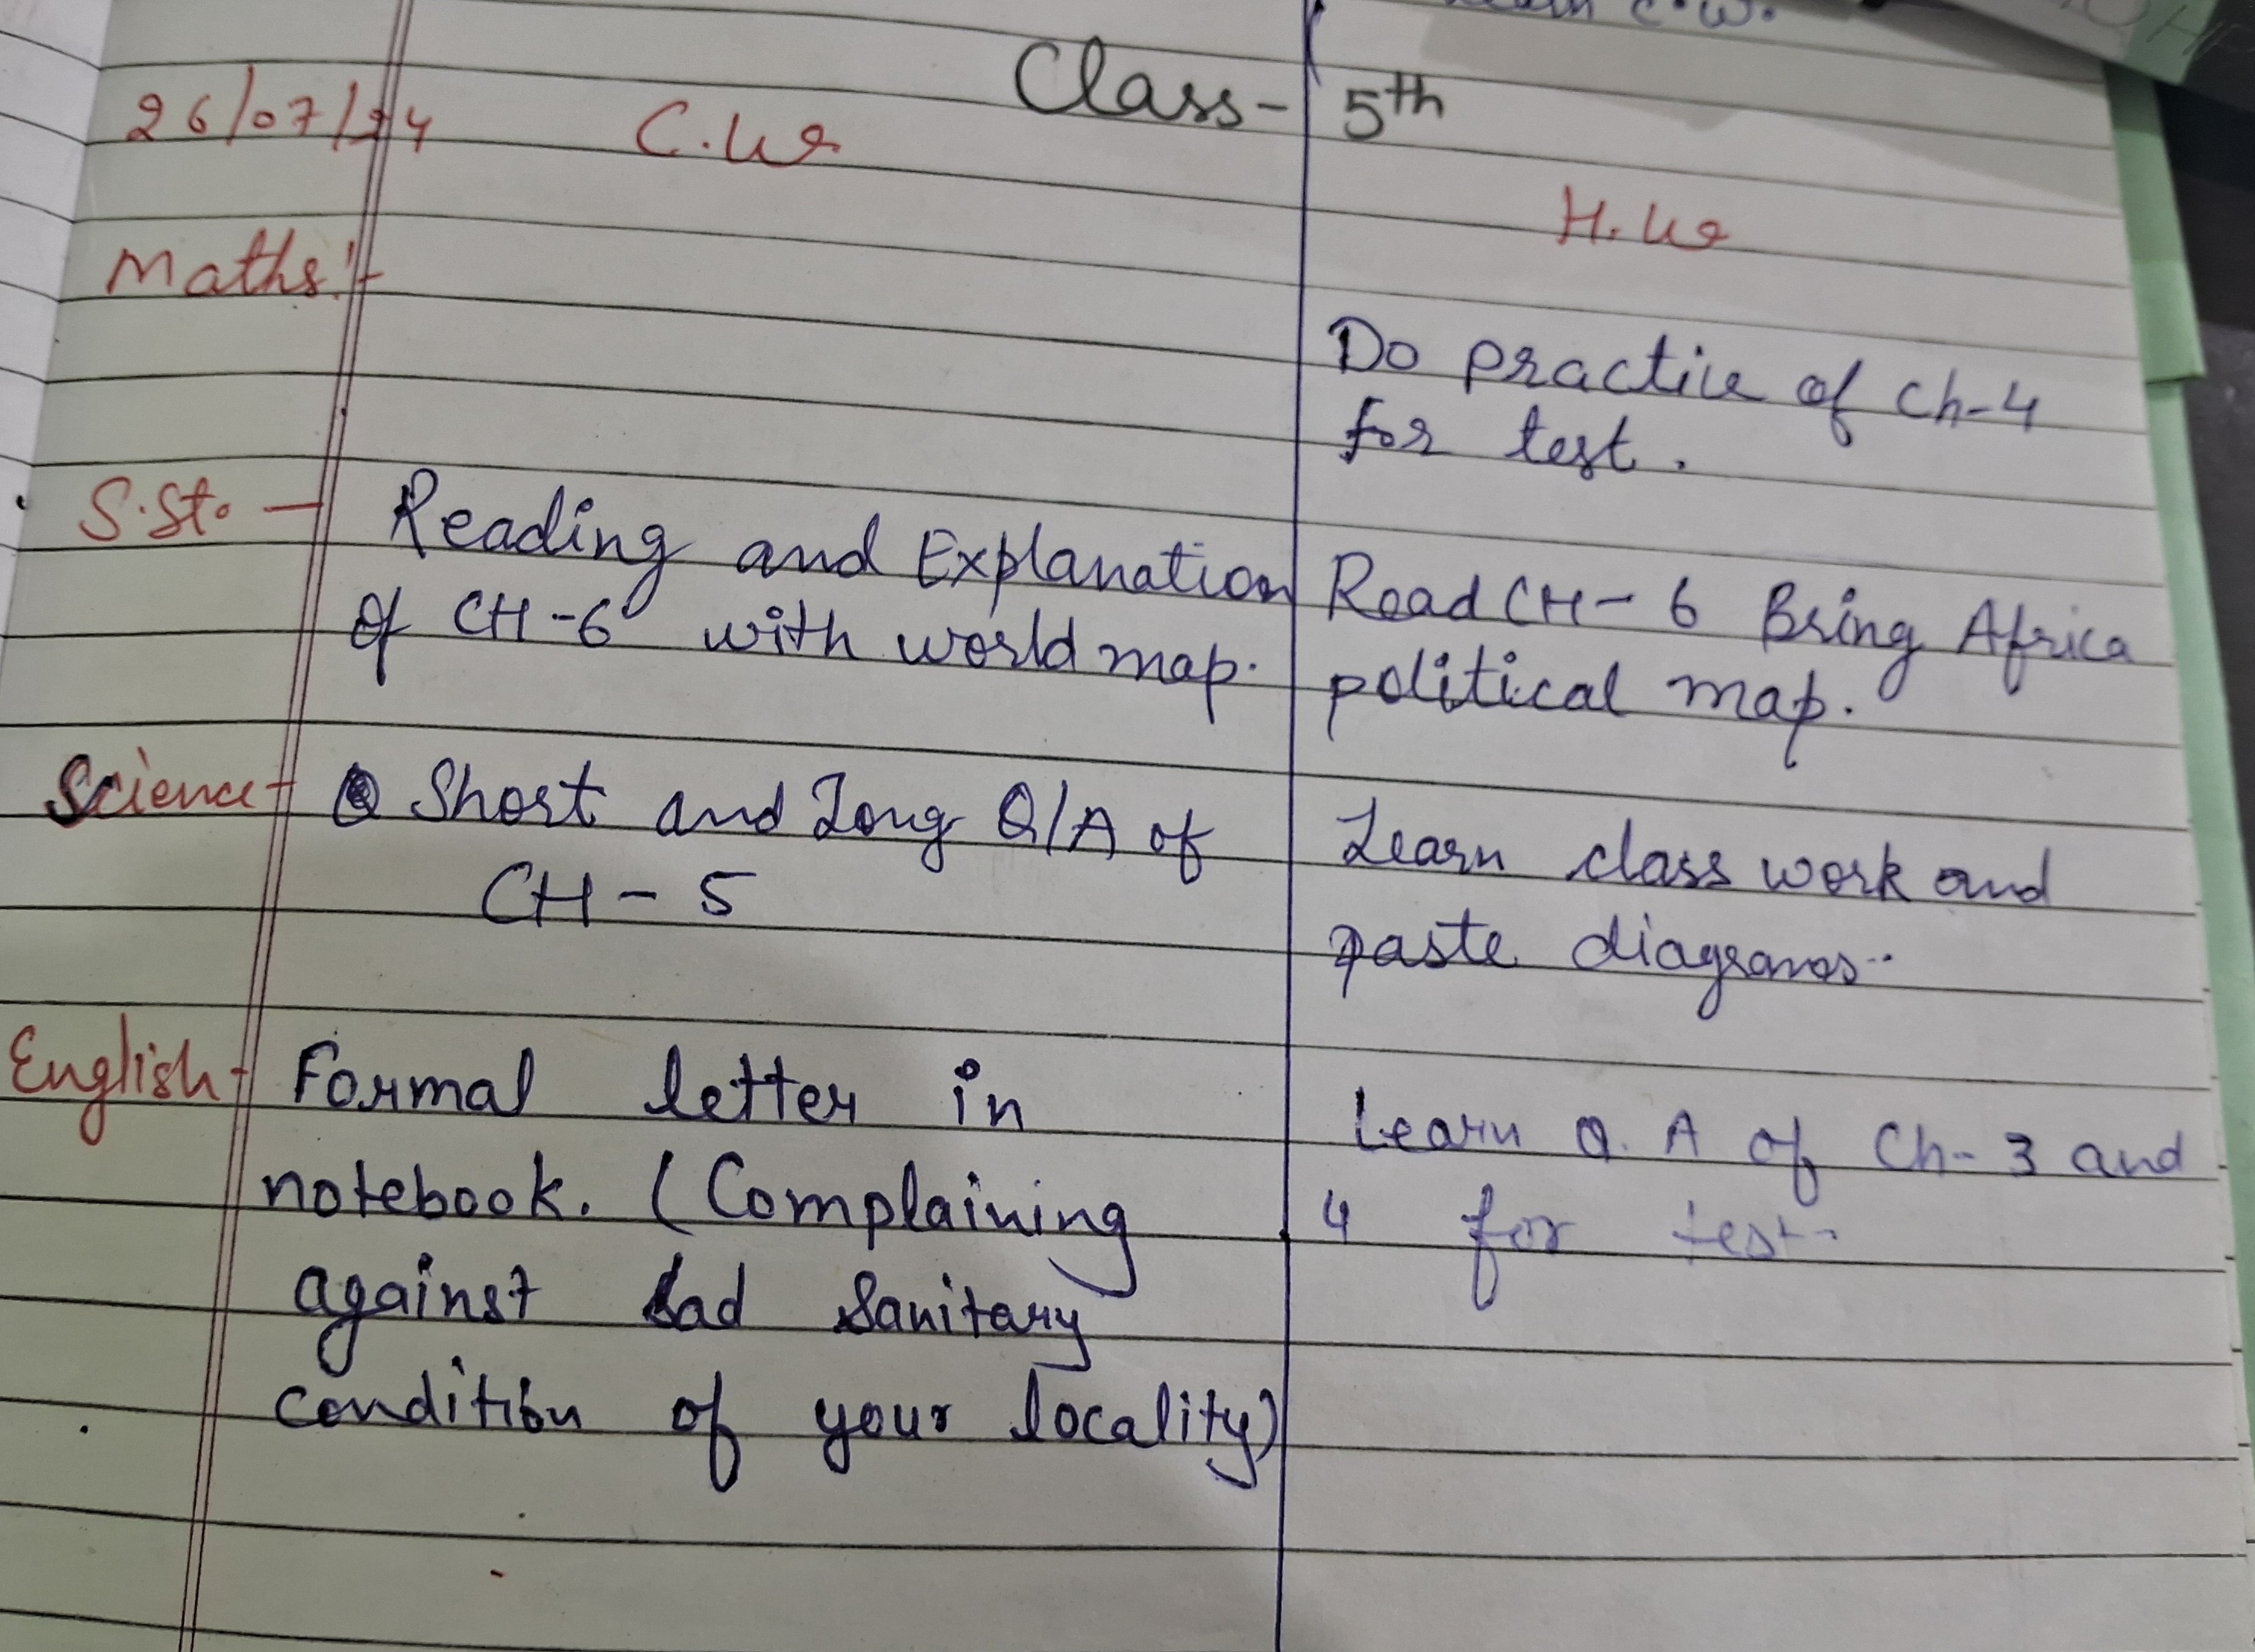 C.W.
Class - 5th
26/07/24 C.W.
H.W
Maths:-
Do practice of Ch-4
for test.
S.St. - Reading and Explanation
of CH-6 with world map.
Read CH-6 Bring Africa
political map.
Science- Short and Long Q/A of
CH-5
Learn class work and
paste diagrams..
English- Formal letter in
notebook. (Complaining
against bad Sanitary
condition of your locality)
Learn Q.A of Ch-3 and
4 for test.